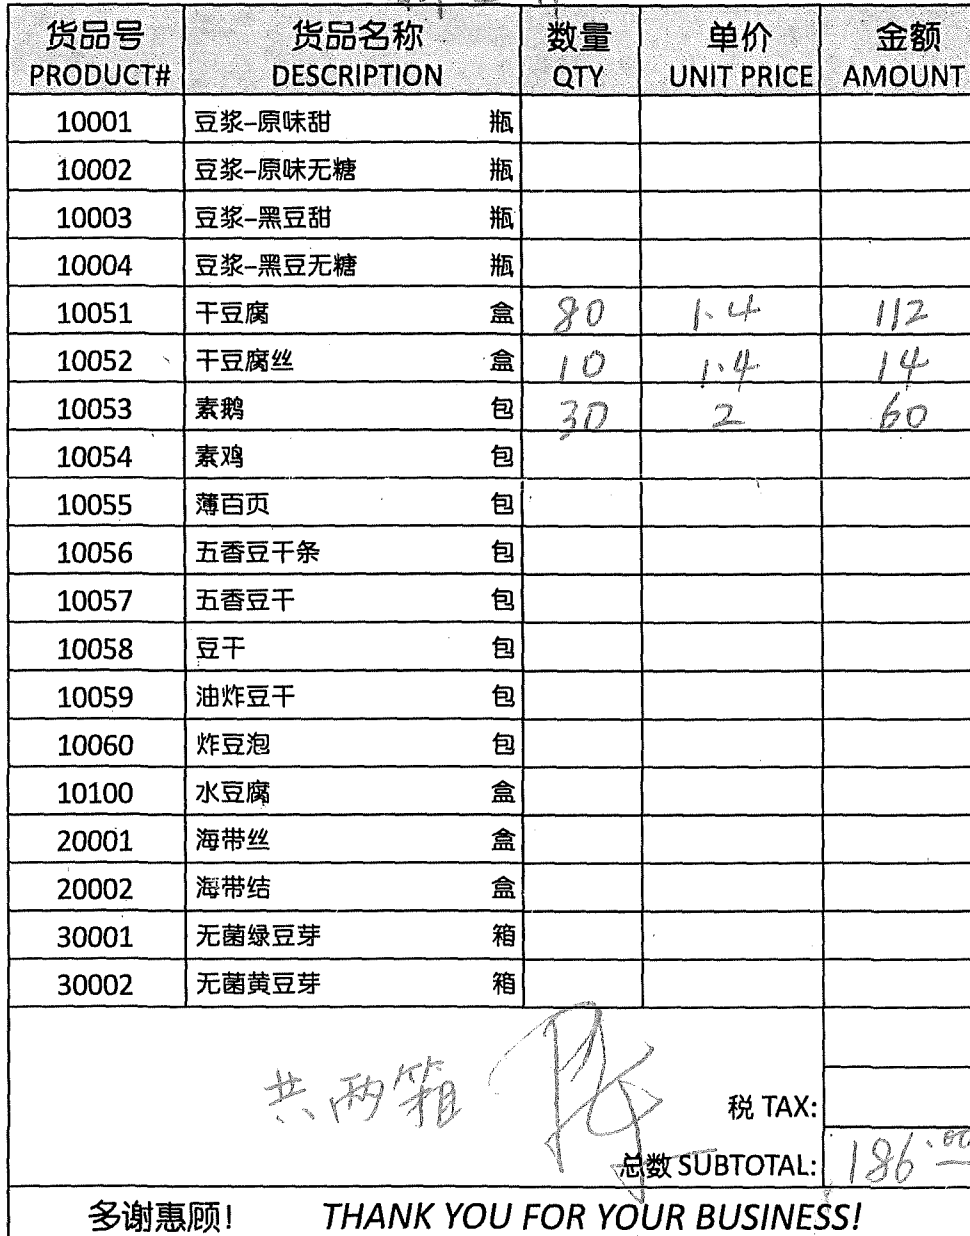 货品号 货品名称 数量 单价 金额
PRODUCT# DESCRIPTION QTY UNIT PRICE AMOUNT
10001 豆浆–原味甜 瓶
10002 豆浆–原味无糖 瓶
10003 豆浆–黑豆甜 瓶
10004 豆浆–黑豆无糖 瓶
10051 干豆腐 盒 80 1.4 112
10052 干豆腐丝 盒 10 1.4 14
10053 素鹅 包 30 2 60
10054 素鸡 包
10055 薄百页 包
10056 五香豆干条 包
10057 五香豆干 包
10058 豆干 包
10059 油炸豆干 包
10060 炸豆泡 包
10100 水豆腐 盒
20001 海带丝 盒
20002 海带结 盒
30001 无菌绿豆芽 箱
30002 无菌黄豆芽 箱
共两箱
税 TAX:
总数 SUBTOTAL: 186.00
多谢惠顾! THANK YOU FOR YOUR BUSINESS!